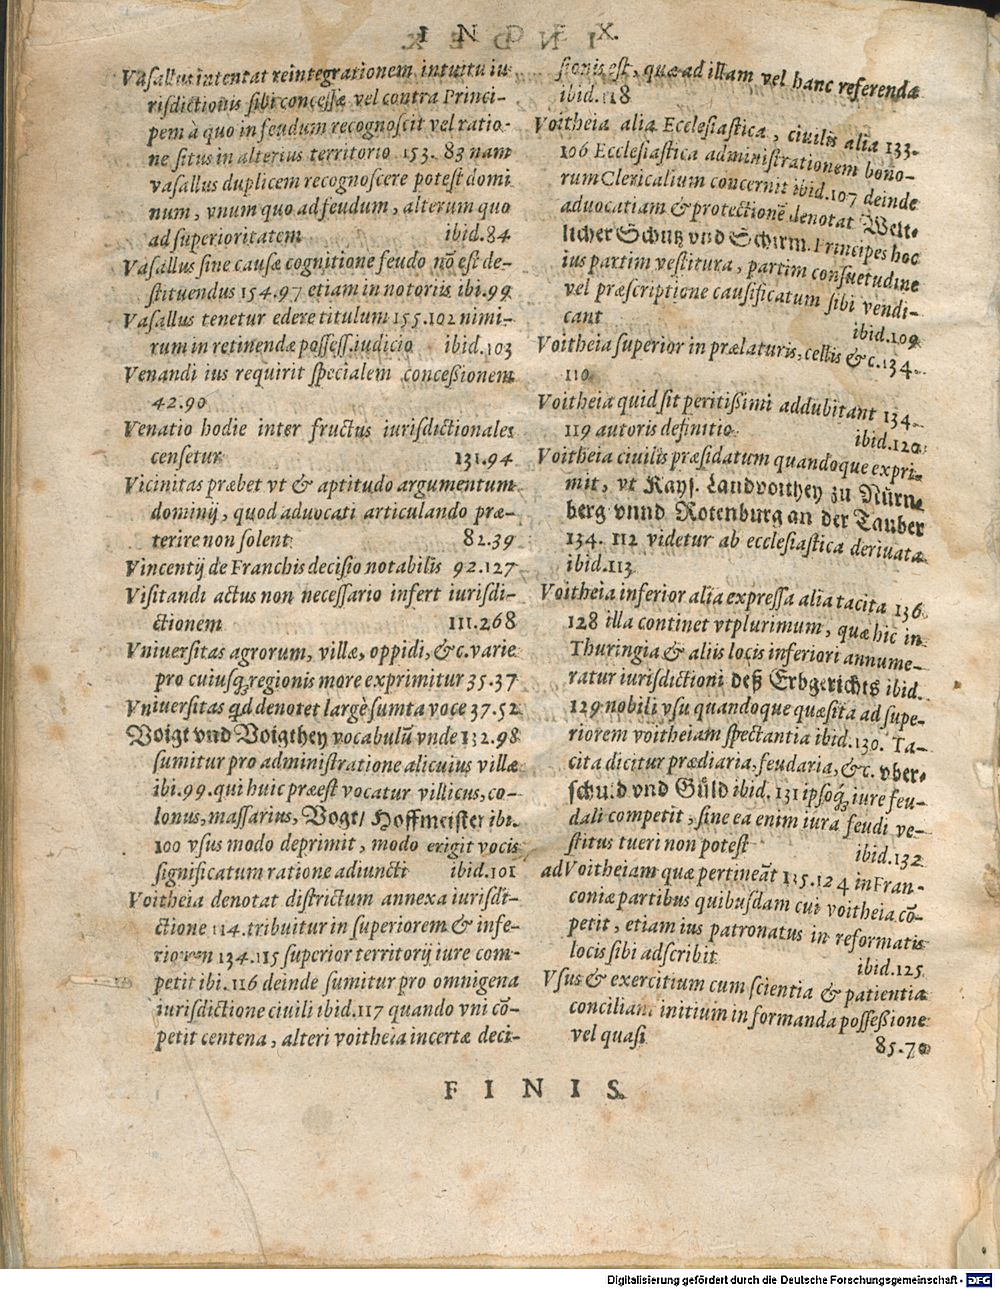 INDEX.
Vasallus intentat reintegrationem intuitu iu-
risdictionis sibi concessæ vel contra Princi-
pem à quo in feudum recognoscit vel ratio-
ne situs in alterius territorio 153. 83 nam
vasallus duplicem recognoscere potest domi
num, vnum quo ad feudum, alterum quo
ad superioritatem ibid.84
Vasallus sine causæ cognitione feudo nō est de-
stituendus 154.97 etiam in notoriis ibi.99
Vasallus tenetur edere titulum 155.102 nimi-
rum in retinendæ possess. iudicio ibid.103
Venandi ius requirit specialem concessionem
42.90
Venatio hodie inter fructus iurisdictionales
censetur 131.94
Vicinitas præbet vt & aptitudo argumentum
dominij, quod aduocati articulando præ-
terire non solent 82.39
Vincentij de Franchis decisio notabilis 92.127
Visitandi actus non necessario infert iurisdi-
ctionem 111.268
Vniuersitas agrorum, villæ, oppidi, &c. varie
pro cuiusq; regionis more exprimitur 35.37
Vniuersitas qd denotet largè sumta voce 37.52
Voigt vnd Voigthey vocabulū vnde 132.98
sumitur pro administratione alicuius villæ
ibi.99. qui huic præest vocatur villicus, co-
lonus, massarius, Vogt/ Hoffmeister ibi.
100 vsus modo deprimit, modo erigit vocis
significatum ratione adiuncti ibid.101
Voitheia denotat districtum annexa iurisdi-
ctione 114. tribuitur in superiorem & infe-
riorem 134.115 superior territorij iure com-
petit ibi.116 deinde sumitur pro omnigena
iurisdictione ciuili ibid.117 quando vni cō-
petit centena, alteri voitheia incertæ deci-
sionis est, quæ ad illam vel hanc referenda
ibid.118
Voitheia alia Ecclesiastica, ciuilis alia 133.
106 Ecclesiastica administrationem bono-
rum Clericalium concernit ibid.107 deinde
aduocatiam & protectionē denotat Welt-
licher Schutz vnd Schirm. Principes hoc
ius partim vestitura, partim consuetudine
vel præscriptione causificatum sibi vendi-
cant ibid.109
Voitheia superior in prælaturis, cellis &c. 134.
110
Voitheia quid sit peritissimi addubitant 134.
119 autoris definitio ibid.120
Voitheia ciuilis præsidatum quandoque expri-
mit, vt Kays. Landvoithey zu Nürn-
berg vnnd Rotenburg an der Tauber
134. 112 videtur ab ecclesiastica deriuata
ibid.113
Voitheia inferior alia expressa alia tacita 136
128 illa continet vtplurimum, quæ hic in
Thuringia & aliis locis inferiori annume-
ratur iurisdictioni deß Erbgerichts ibid.
129 nobili vsu quandoque quæsita ad supe-
riorem voitheiam spectantia ibid.130. Ta-
cita dicitur prædiaria, feudaria, &c. vber-
schuld vnd Güld ibid. 131 ipsoq; iure feu-
dali competit, sine ea enim iura feudi ve-
stitus tueri non potest ibid.132
ad Voitheiam quæ pertineāt 135.124 in Fran-
coniæ partibus quibusdam cui voitheia cō-
petit, etiam ius patronatus in reformatis
locis sibi adscribit ibid.125
Vsus & exercitium cum scientia & patientia
conciliant initium in formanda possessione
vel quasi 85.70
FINIS.
Digitalisierung gefördert durch die Deutsche Forschungsgemeinschaft - DFG